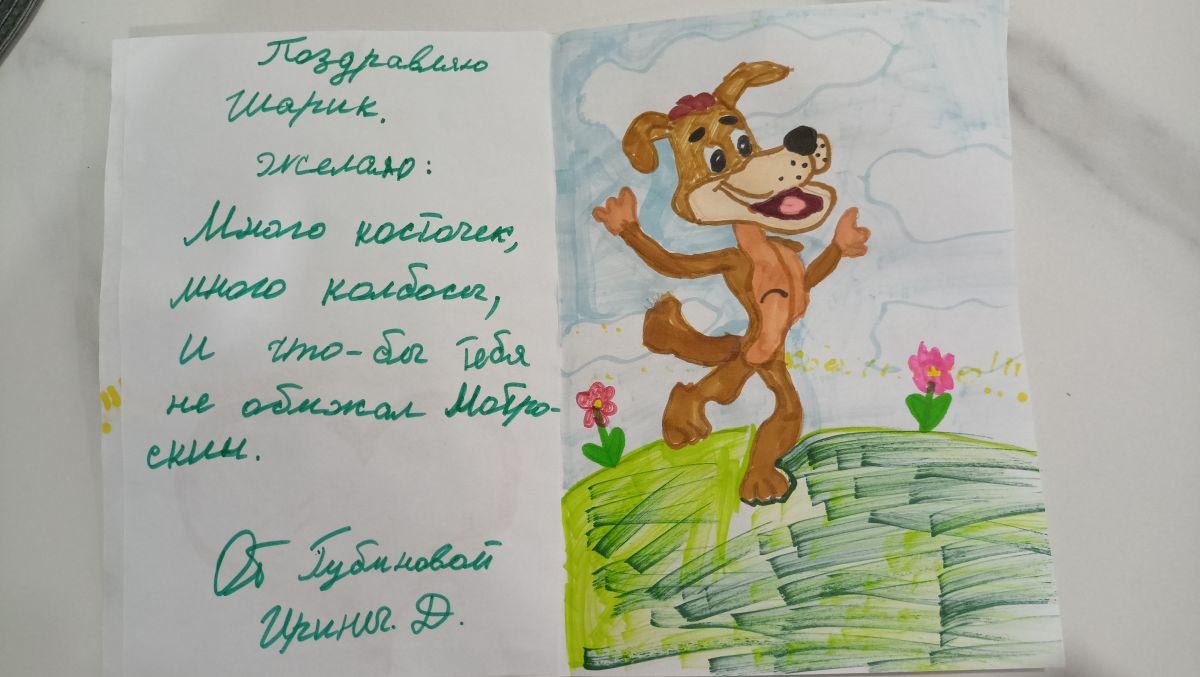 Поздравляю
Шарик.
Желаю:
Много косточек,
много колбосы,
И что-бы тебя
не обижал Матро-
скин.
От Губиновой
Ирины. Д.